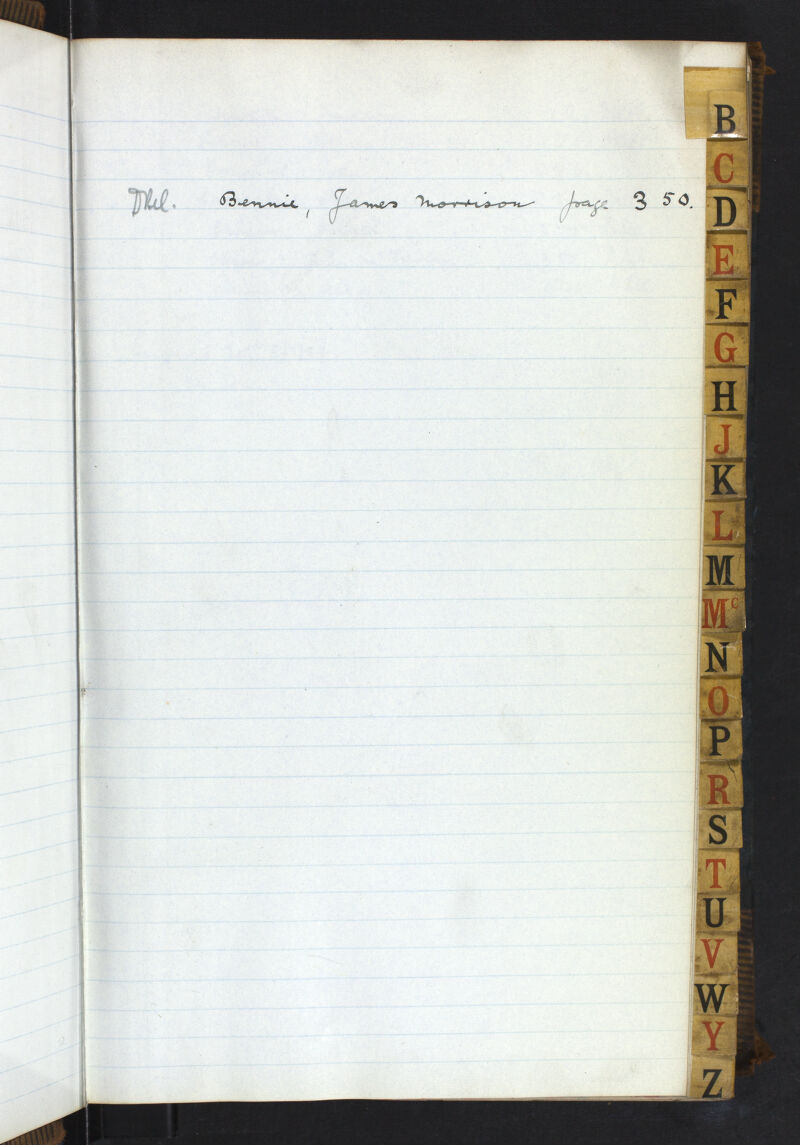 Bennie, James Morrison page 350.
B
C
D
E
F
G
H
J
K
L
M
Mc
N
O
P
R
S
T
U
V
W
Y
Z